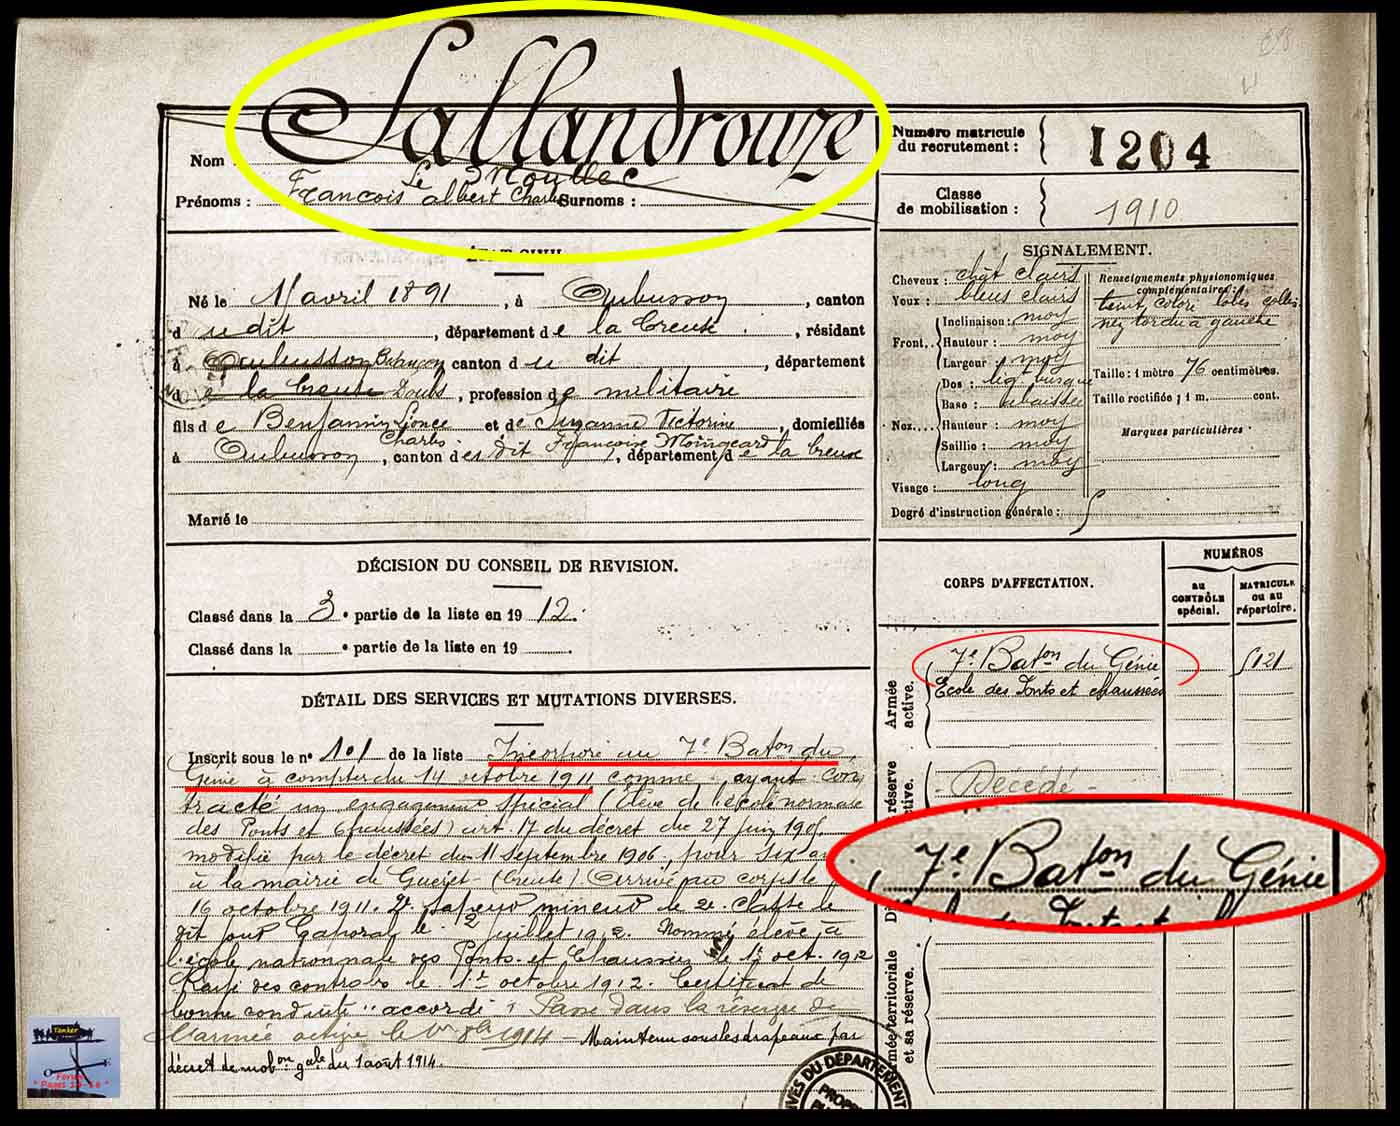 Sallandrouze
Nom :
Le Moullec
Prénoms : François albert Charles Surnoms :
Numéro matricule
du recrutement : 1204
Classe
de mobilisation : 1910
ÉTAT CIVIL.
Né le 11 avril 1891, à Aubusson, canton
d u dit, département de la Creuse, résidant
à Aubusson Besançon canton d u dit, département
d e la Creuse Doubs, profession de militaire
fils de Benjamin Léonce et de Suzanne Victorine, domiciliés
Charles Françoise Moingeard
à Aubusson, canton du dit, département de la Creuse
Marié le
SIGNALEMENT.
Cheveux : chât clairs
Yeux : bleus clairs
Front. Inclinaison : moy
Hauteur : moy
Largeur : moy
Nez. Dos : lég busqué
Base : abaissée
Hauteur : moy
Saillie : moy
Largeur : moy
Visage : long
Degré d'instruction générale :
Renseignements physionomiques
complémentaires :
teint coloré lobes
nez tordu à gauche
Taille : 1 mètre 76 centimètres.
Taille rectifiée ; 1 m. cent.
Marques particulières
DÉCISION DU CONSEIL DE REVISION.
Classé dans la 3e partie de la liste en 1912.
Classé dans la e partie de la liste en 19
DÉTAIL DES SERVICES ET MUTATIONS DIVERSES.
Inscrit sous le n° 101 de la liste Incorporé au 7e Baton du
Génie à compter du 14 octobre 1911 comme ayant con
tracté un engagement spécial (élève de l'école normale
des Ponts et Chaussées) art. 17 du décret du 27 juin 1905,
modifié par le décret du 11 Septembre 1906, pour six an
à la mairie de Guéret (Creuse). Arrivé au corps le
16 octobre 1911. Dt sapeur mineur de 2e classe le
dit jour Caporal le 2 juillet 1912. Nommé élève à
l'école nationale des Ponts et Chaussées le 1er oct. 1912
Rayé des contrôles le 1er octobre 1912. Certificat de
bonne conduite "accordé" Passé dans la réserve de
l'armée active le 1er 8bre 1914 Maintenu sous les drapeaux par
décret de mobon gale du 1 août 1914.
CORPS D'AFFECTATION.
NUMÉROS
AU
CONTRÔLE
spécial.
MATRICULE
ou au
répertoire.
Armée
active.
7e Baton du Génie 5121
École des Ponts et chaussées
réserve
active.
Décédé
7e Baton du Génie
Armée territoriale
et sa réserve.
ARCHIVES DU DÉPARTEMENT
PROPR
Tanker
Forum
" Pages 14-18 "